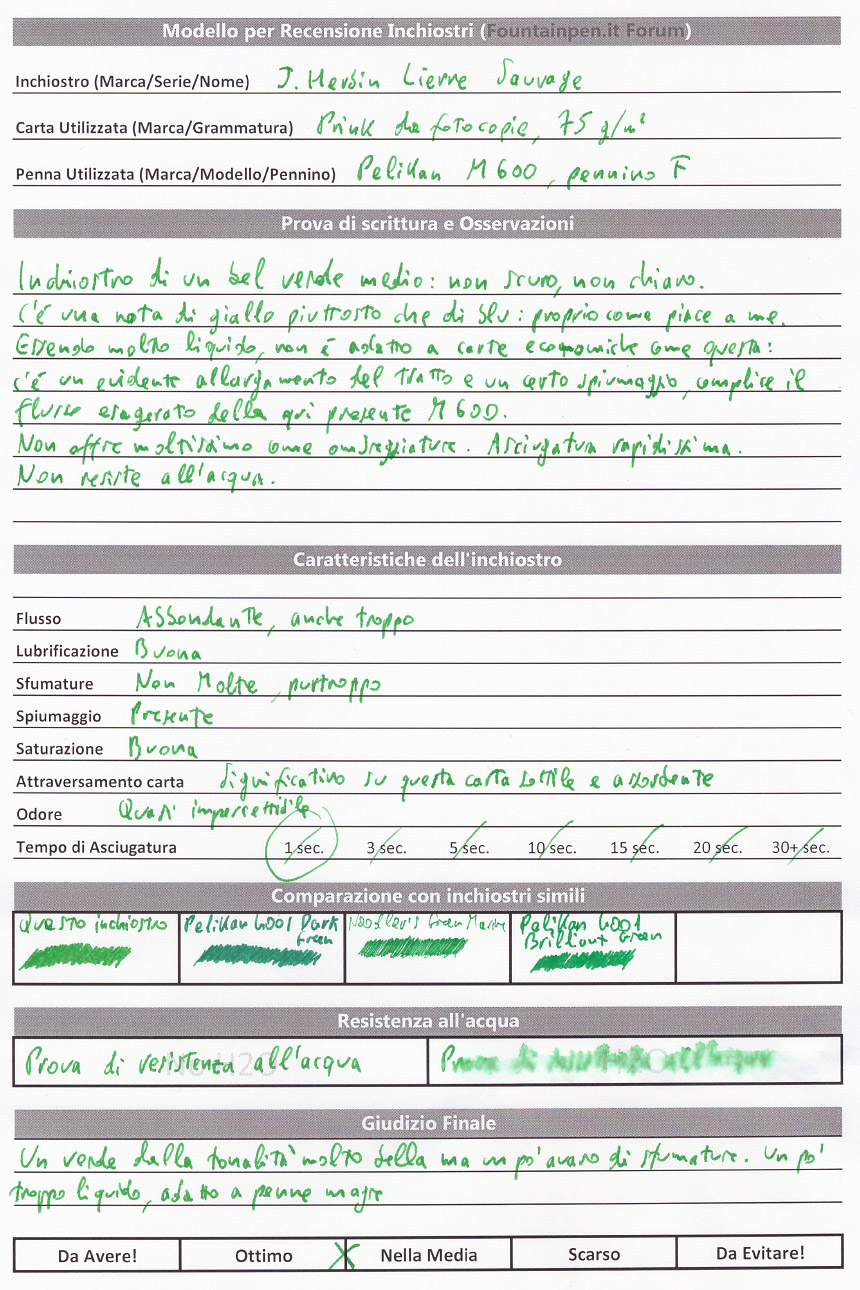 Modello per Recensione Inchiostri (Fountainpen.it Forum)
Inchiostro (Marca/Serie/Nome) J. Herbin Lierre Sauvage
Carta Utilizzata (Marca/Grammatura) Prink da fotocopie, 75 g/m²
Penna Utilizzata (Marca/Modello/Pennino) Pelikan M600, pennino F
Prova di scrittura e Osservazioni
Inchiostro di un bel verde medio: non scuro, non chiaro.
C'è una nota di giallo piuttosto che di blu: proprio come piace a me.
Essendo molto liquido, non è adatto a carte economiche come questa:
c'è un evidente allargamento del tratto e un certo spiumaggio, complice il
flusso esagerato della qui presente M600.
Non offre moltissimo come ombreggiature. Asciugatura rapidissima.
Non resiste all'acqua.
Caratteristiche dell'inchiostro
Flusso Abbondante, anche troppo
Lubrificazione Buona
Sfumature Non Molte, purtroppo
Spiumaggio Presente
Saturazione Buona
Attraversamento carta Significativo su questa carta sottile e assorbente
Odore Quasi impercettibile
Tempo di Asciugatura 1 sec. 3 sec. 5 sec. 10 sec. 15 sec. 20 sec. 30+ sec.
Comparazione con inchiostri simili
Questo inchiostro Pelikan 4001 Dark Green Noodler's Green Marine Pelikan 4001 Brilliant Green
Resistenza all'acqua
Prova di resistenza all'acqua Prova di resistenza all'acqua
Giudizio Finale
Un verde dalla tonalità molto bella ma un po' avaro di sfumature. Un po'
troppo liquido, adatto a penne magre
Da Avere! Ottimo X Nella Media Scarso Da Evitare!